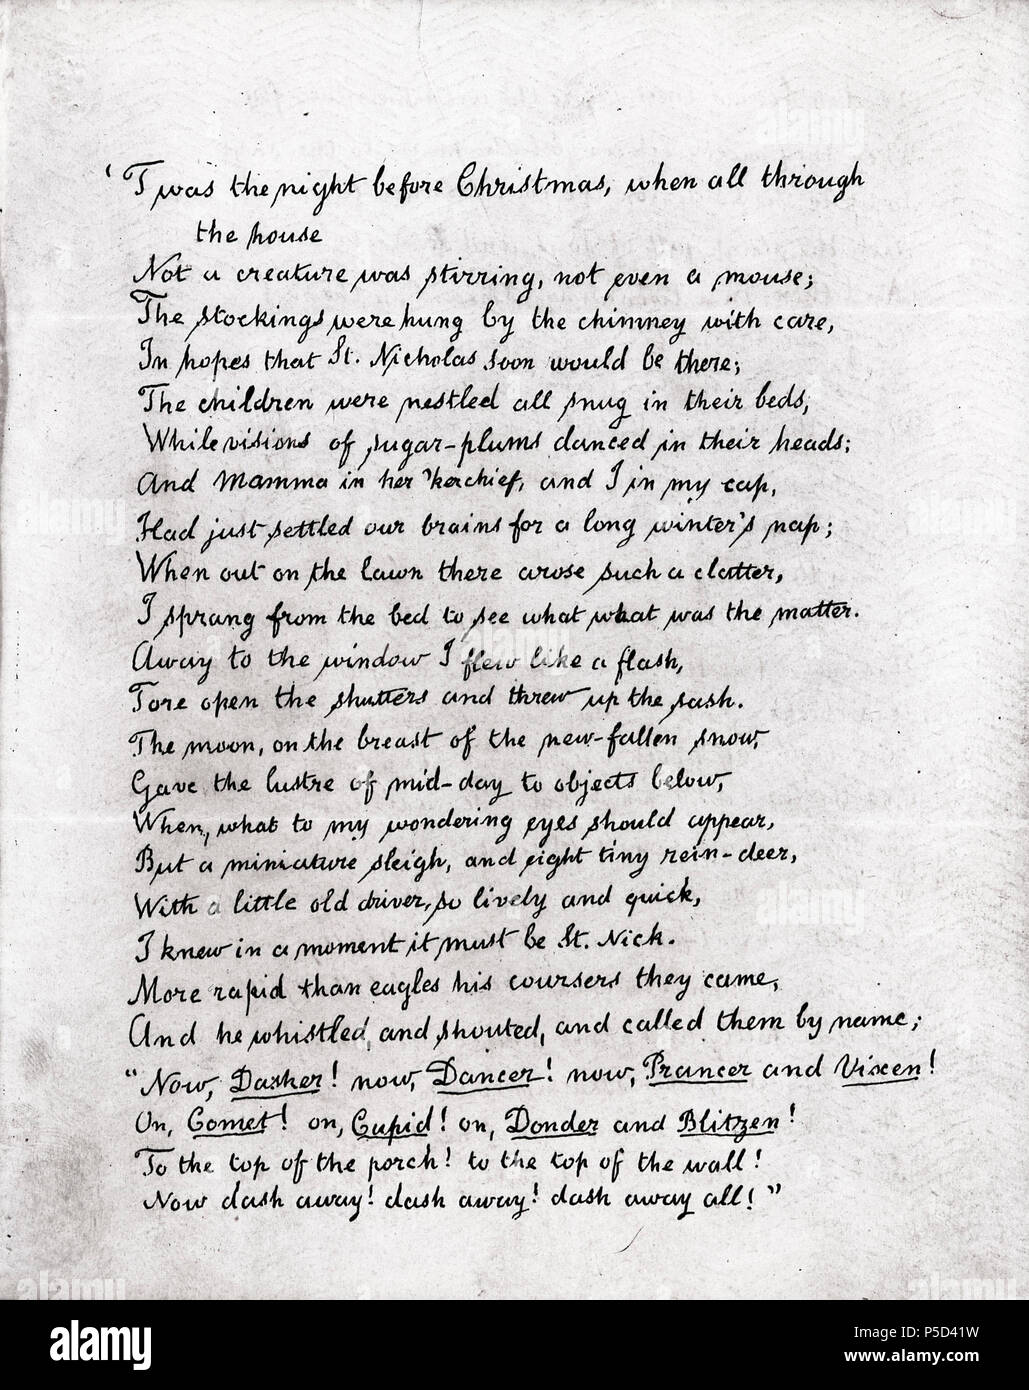 'Twas the night before Christmas, when all through
the house
Not a creature was stirring, not even a mouse;
The stockings were hung by the chimney with care,
In hopes that St. Nicholas soon would be there;
The children were nestled all snug in their beds,
While visions of sugar-plums danced in their heads;
And Mamma in her 'kerchief, and I in my cap,
Had just settled our brains for a long winter's nap;
When out on the lawn there arose such a clatter,
I sprang from the bed to see what what was the matter.
Away to the window I flew like a flash,
Tore open the shutters and threw up the sash.
The moon, on the breast of the new-fallen snow,
Gave the lustre of mid-day to objects below,
When, what to my wondering eyes should appear,
But a miniature sleigh, and eight tiny rein-deer,
With a little old driver, so lively and quick,
I knew in a moment it must be St. Nick.
More rapid than eagles his coursers they came,
And he whistled, and shouted, and called them by name;
"Now, Dasher! now, Dancer! now, Prancer and Vixen!
On, Comet! on, Cupid! on, Donder and Blitzen!
To the top of the porch! to the top of the wall!
Now dash away! dash away! dash away all!"
alamy
Image ID: P5D41W
www.alamy.com